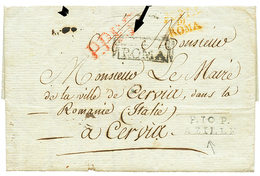 ROMA
ROMA
Monsieur
Monsieur Le Maire
de la ville de Cervia, dans la
Romanie (Italie)
à Cervia
P.10.P.
AZILLE